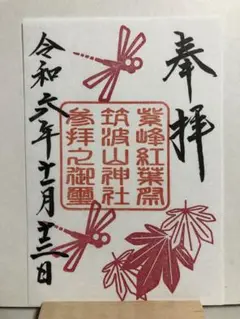 奉拝
紫峰紅葉祭
筑波山神社
参拝之御璽
令和六年十一月十三日